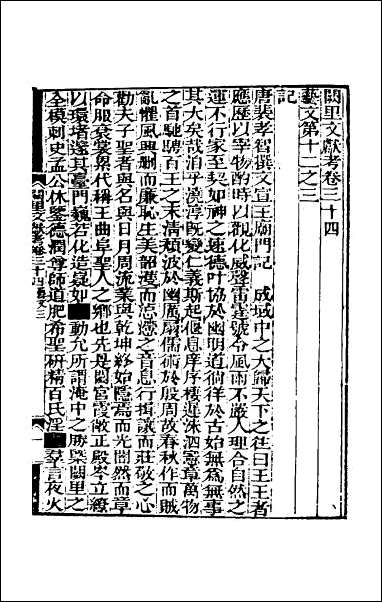 闕里文獻考卷三十四
藝文第十二之三
記
唐裴孝智撰文宣王廟門記　成域中之大歸天下之往曰王王者
應歷以宰物酌時以觀化威聲雷霆號令風雨不嚴人理合自然之
運不行家至契如神之速德叶協於幽明道徜徉於古始無為無事
其大矣哉洎乎澆淳既變仁義斯起偃息庠序棲遲洙泗憲章萬物
之首馳騁百王之末清頹波於幽厲扇儒術於殷周故春秋作而賊
亂懼風興刪而廉恥生美韶濩而忘懘之音息行揖讓而莊敬之心
勸夫子聖者與名與日月周流業與乾坤終始隱焉而光闇然而章
命服袞裳累代稱王曲阜聖人之鄉也先是閟宮霞敞正殿岑立繚
以環堵遂其臺門巍若化造疑如動允所謂淹中之勝槩闕里之
全模刺史孟公休鑒德潤尊師道肥希聖研精百氏淫羣言夜火
闕里文獻考卷三十四藝文三